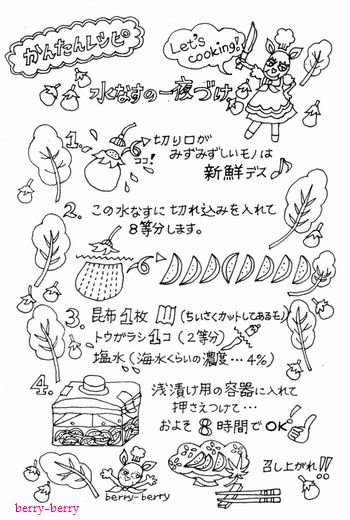 かんたんレシピ
Let's cooking!
水なすの一夜づけ
1.
ココ!
切り口が
みずみずしいモノは
新鮮デス♪
2. この水なすに切れ込みを入れて
8等分します。
3. 昆布1枚 (ちいさくカットしてあるモノ)
トウガラシ1コ (2等分)
塩水 (海水くらいの濃度…4%)
4. 浅漬け用の容器に入れて
押さえつけて…
およそ8時間でOK!
召し上がれ!!
berry-berry
berry-berry